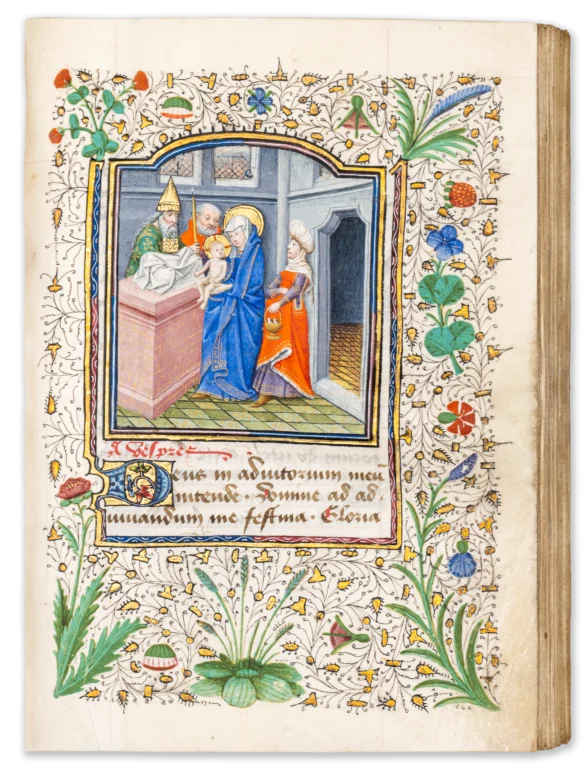 A vespres
Deus in adiutorium meu
intende · Domine ad ad
iuuandum me festina · Gloria